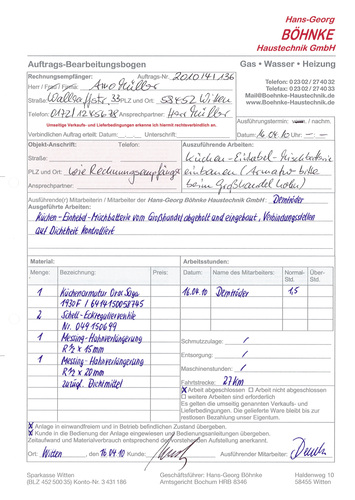 Hans-Georg
BÖHNKE
Haustechnik GmbH
Auftrags-Bearbeitungsbogen
Gas • Wasser • Heizung
Rechnungsempfänger:
Auftrags-Nr. 2010141136
Herr / Frau / Firma: Arno Müller
Telefon: 0 23 02 / 27 40 32
Telefax: 0 23 02 / 27 40 33
Mail@Boehnke-Haustechnik.de
www.Boehnke-Haustechnik.de
Straße: 33 PLZ und Ort: 58452 Witten
Telefon: Ansprechpartner: Herr Müller
Umseitige Verkaufs- und Lieferbedingungen erkenne ich hiermit rechtsverbindlich an.
Ausführungstermin: / nachm.
Verbindlichen Auftrag erteilt: Datum: Unterschrift:
Datum: 16.04.10 Uhr: – –
Objekt-Anschrift: Telefon:
Auszuführende Arbeiten:
Straße:
Küchen-Einhebel-Mischbatterie
PLZ und Ort: wie Rechnungsempfänger
einbauen (Armatur bitte
Ansprechpartner:
beim Großhandel holen)
Ausführende(r) Mitarbeiterin / Mitarbeiter der Hans-Georg Böhnke Haustechnik GmbH: Demtröder
Ausgeführte Arbeiten:
Küchen-Einhebel-Mischbatterie vom Großhandel abgeholt und eingebaut, Verbindungsstellen
auf Dichtheit kontrolliert
Material:
Arbeitsstunden:
Menge: Bezeichnung: Preis:
Datum: Name des Mitarbeiters: Normal-Std. Über-Std.
1 Küchenarmatur Oras Saga
16.04.10 Demtröder 1,5
1930F / 6414150058745
2 Schell-Eckregulierventile
Nr. 049150699
1 Messing-Hahnverlängerung
R ½ x 15mm
Schmutzzulage: /
1 Messing-Hahnverlängerung
Entsorgung: /
R ½ x 20 mm
Maschinenstunden: /
zuzügl. Dichtmittel
Fahrtstrecke: 27 km
X Arbeit abgeschlossen Arbeit nicht abgeschlossen
weitere Arbeiten sind erforderlich
Es gelten die umseitig genannten Verkaufs- und
Lieferbedingungen. Die gelieferte Ware bleibt bis zur
restlosen Bezahlung unser Eigentum.
X Anlage in einwandfreiem und in Betrieb befindlichen Zustand übergeben.
X Kunde in die Bedienung der Anlage eingewiesen und Bedienungsanleitungen übergeben.
Zeitaufwand und Materialverbrauch entsprechend der vorstehenden Aufstellung anerkannt.
Ort: Witten , den 16.04.10 Kunde: Ausführender Mitarbeiter:
Sparkasse Witten
Geschäftsführer: Hans-Georg Böhnke
Haldenweg 10
(BLZ 452 500 35) Konto-Nr. 3 431 186
Amtsgericht Bochum HRB 8346
58455 Witten